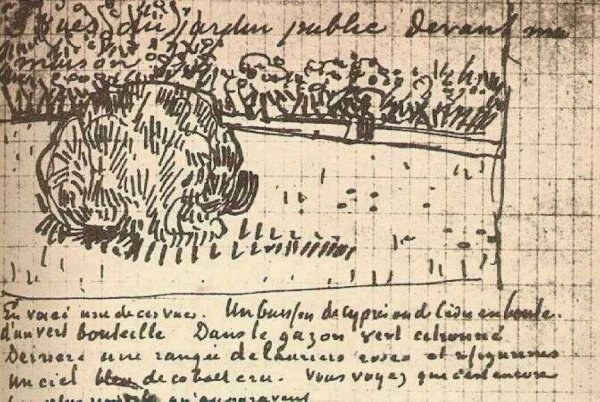 vues du jardin public devant ma
maison
En voici une de ces vues. Un buisson de cyprès ou de cèdre en boule.
d'un vert bouteille Dans le gazon vert citronné
Derrière une rangée de lauriers roses et
un ciel bleu de cobalt cru. Vous voyez que c'est encore
plus qu'auparavant